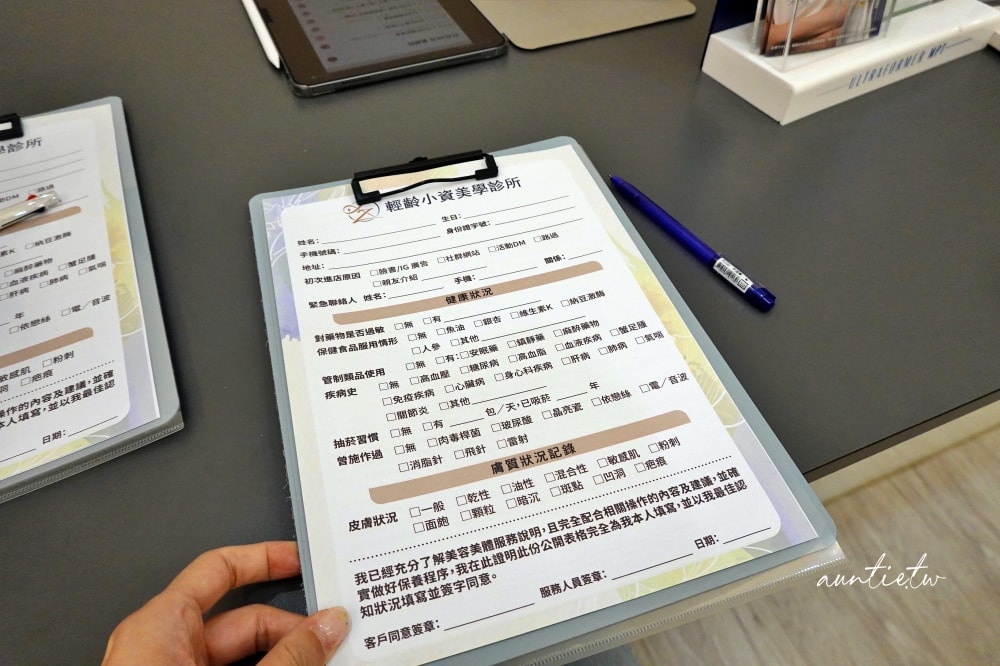 ULTRAFORMER MPT
學診所
輕齡小資美學診所
姓名： 生日：
手機號碼： 身份證字號：
地址：
初次進店原因 □臉書/IG 廣告 □社群網站 □活動DM □路過
□親友介紹
緊急聯絡人 姓名： 手機： 關係：
健康狀況
對藥物是否過敏 □無 □有
保健食品服用情形 □無 □魚油 □銀杏 □維生素K □納豆激酶
□人參 □其他
管制類品使用 □無 □有：□安眠藥 □鎮靜藥 □麻醉藥物
疾病史 □無 □高血壓 □糖尿病 □高血脂 □血液疾病 □蟹足腫
□免疫疾病 □心臟病 □身心科疾病 □肝病 □肺病 □氣喘
□關節炎 □其他
抽菸習慣 □無 □有 包／天，已吸菸 年
曾施作過 □無 □肉毒桿菌 □玻尿酸 □晶亮瓷 □依戀絲 □電／音波
□消脂針 □飛針 □雷射
膚質狀況記錄
皮膚狀況 □一般 □乾性 □油性 □混合性 □敏感肌 □粉刺
□面皰 □顆粒 □暗沉 □斑點 □凹洞 □疤痕
我已經充分了解美容美體服務說明，且完全配合相關操作的內容及建議，並確
實做好保養程序，我在此證明此份公開表格完全為我本人填寫，並以我最佳認
知狀況填寫並簽字同意。
客戶同意簽章： 服務人員簽章： 日期：
動DM □路過
生素K □納豆激酶
□麻醉藥物
□血液疾病 □蟹足腫
□肝病 □肺病 □氣喘
年
□依戀絲 □電／音波
敏感肌 □粉刺
洞 □疤痕
操作的內容及建議，並確
本人填寫，並以我最佳認
日期：
auntie.tw